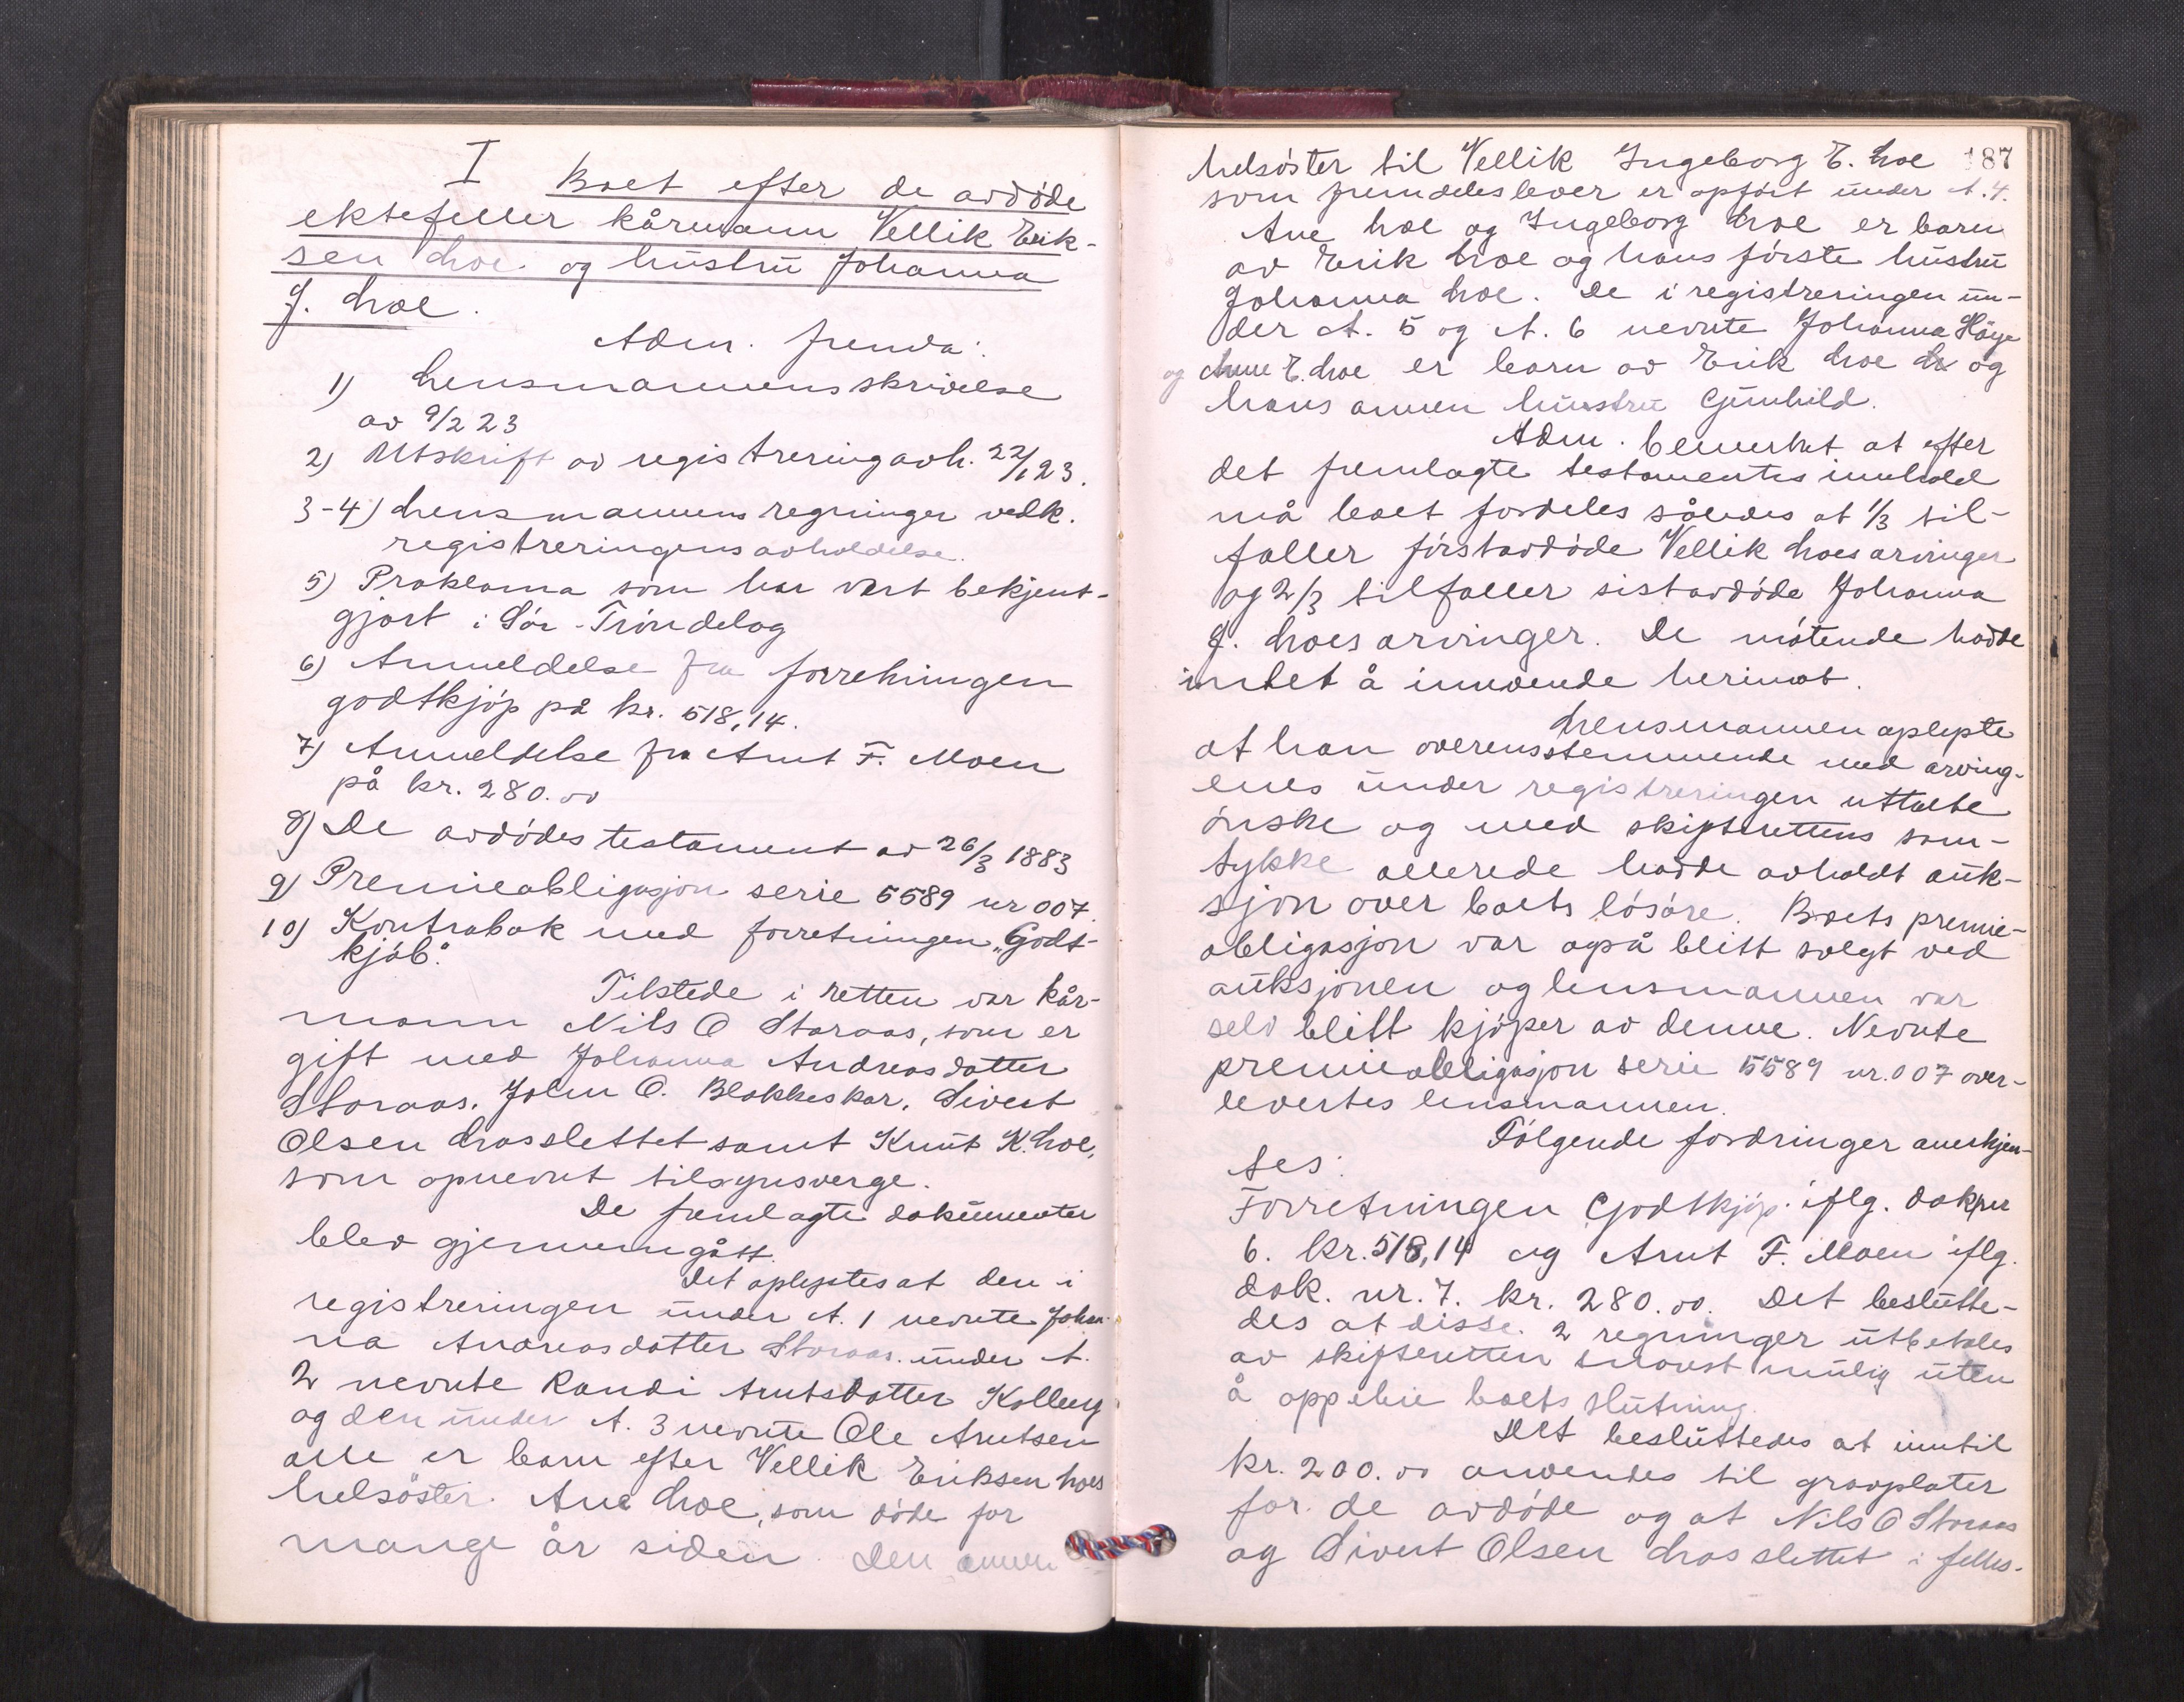 I Boet efter de avdöde
ektefeller kårmann Vellik Erik-
sen Loe og hustru Johanna
J. Loe.
Adm. fremla:
1) Lensmannens skrivelse
av 9/2 23
2) Utskrift av registrering avh. 22/1 23.
3-4) Lensmannens regninger vedk.
registreringens avholdelse.
5) Proklama som har vært bekjent-
gjort i Sör-Tröndelag
6) Anmeldelse fra forretningen
godtkjöp på kr. 518,14.
7) Anmeldelse fra Arnt F. Moen
på kr. 280.00
8) De avdödes testament av 26/3 1883
9) Premieobligasjon serie 5589 nr 007.
10) Kontrabok med forretningen „Godt-
kjöb."
Tilstede i retten var kår-
mann Nils O Storaas, som er
gift med Johanna Andreasdatter
Storaas, John O. Blokkeskar, Sivert
Olsen Loeslettet samt Knut K. Loe,
som opnevnt tilsynsverge.
De fremlagte dokumenter
blev gjennemgått.
Det oplystes at den i
registreringen under A. 1 nevnte Johan-
na Andreasdatter Storaas, under A.
2 nevnte Randi Arntsdatter Kolberg
og den under A. 3 nevnte Ole Arntsen
alle er barn efter Vellik Eriksen Loes
helsöster Ane Loe, som döde for
mange år siden. Den annen
187
helsöster til Vellik Ingeborg E. Loe
som fremdeles lever er opfört under A. 4.
Ane Loe og Ingeborg Loe er barn
av Erik Loe og hans förste hustru
Johanna Loe. De i registreringen un-
der A. 5 og A. 6 nevnte Johanna Höge
og Ane E. Loe er barn av Erik Loe og
hans annen hustru Gunhild.
Adm. bemerket at efter
det fremlagte testamentes innhold
må boet fordeles således at 1/3 til-
faller förstavdöde Vellik Loes arvinger
og 2/3 tilfaller sistavdöde Johanna
J. Loes arvinger. De mötende hadde
intet å innvende herimot.
Lensmannen oplyste
at han overensstemmende med arving-
enes under registreringen uttalte
önske og med skifterettens sam-
tykke allerede hadde avholdt auk-
sjon over boets lösöre. Boets premie-
obligasjon var også blitt solgt ved
auksjonen og lensmannen var
selv blitt kjöper av denne. Nevnte
premieobligasjon serie 5589 nr. 007 over-
levertes lensmannen.
Fölgende fordringer anerkjen-
tes:
Forretningen Godtkjöp iflg. dok nr
6. kr. 518,14 og Arnt F. Moen iflg.
dok. nr. 7. kr. 280.00. Det beslutte-
des at disse 2 regninger utbetales
av skifteretten snarest mulig uten
å oppebie boets slutning.
Det besluttedes at inntil
kr. 200.00 anvendes til gravplater
for de avdöde og at Nils O Storaas
og Sivert Olsen Loeslettet i felles-